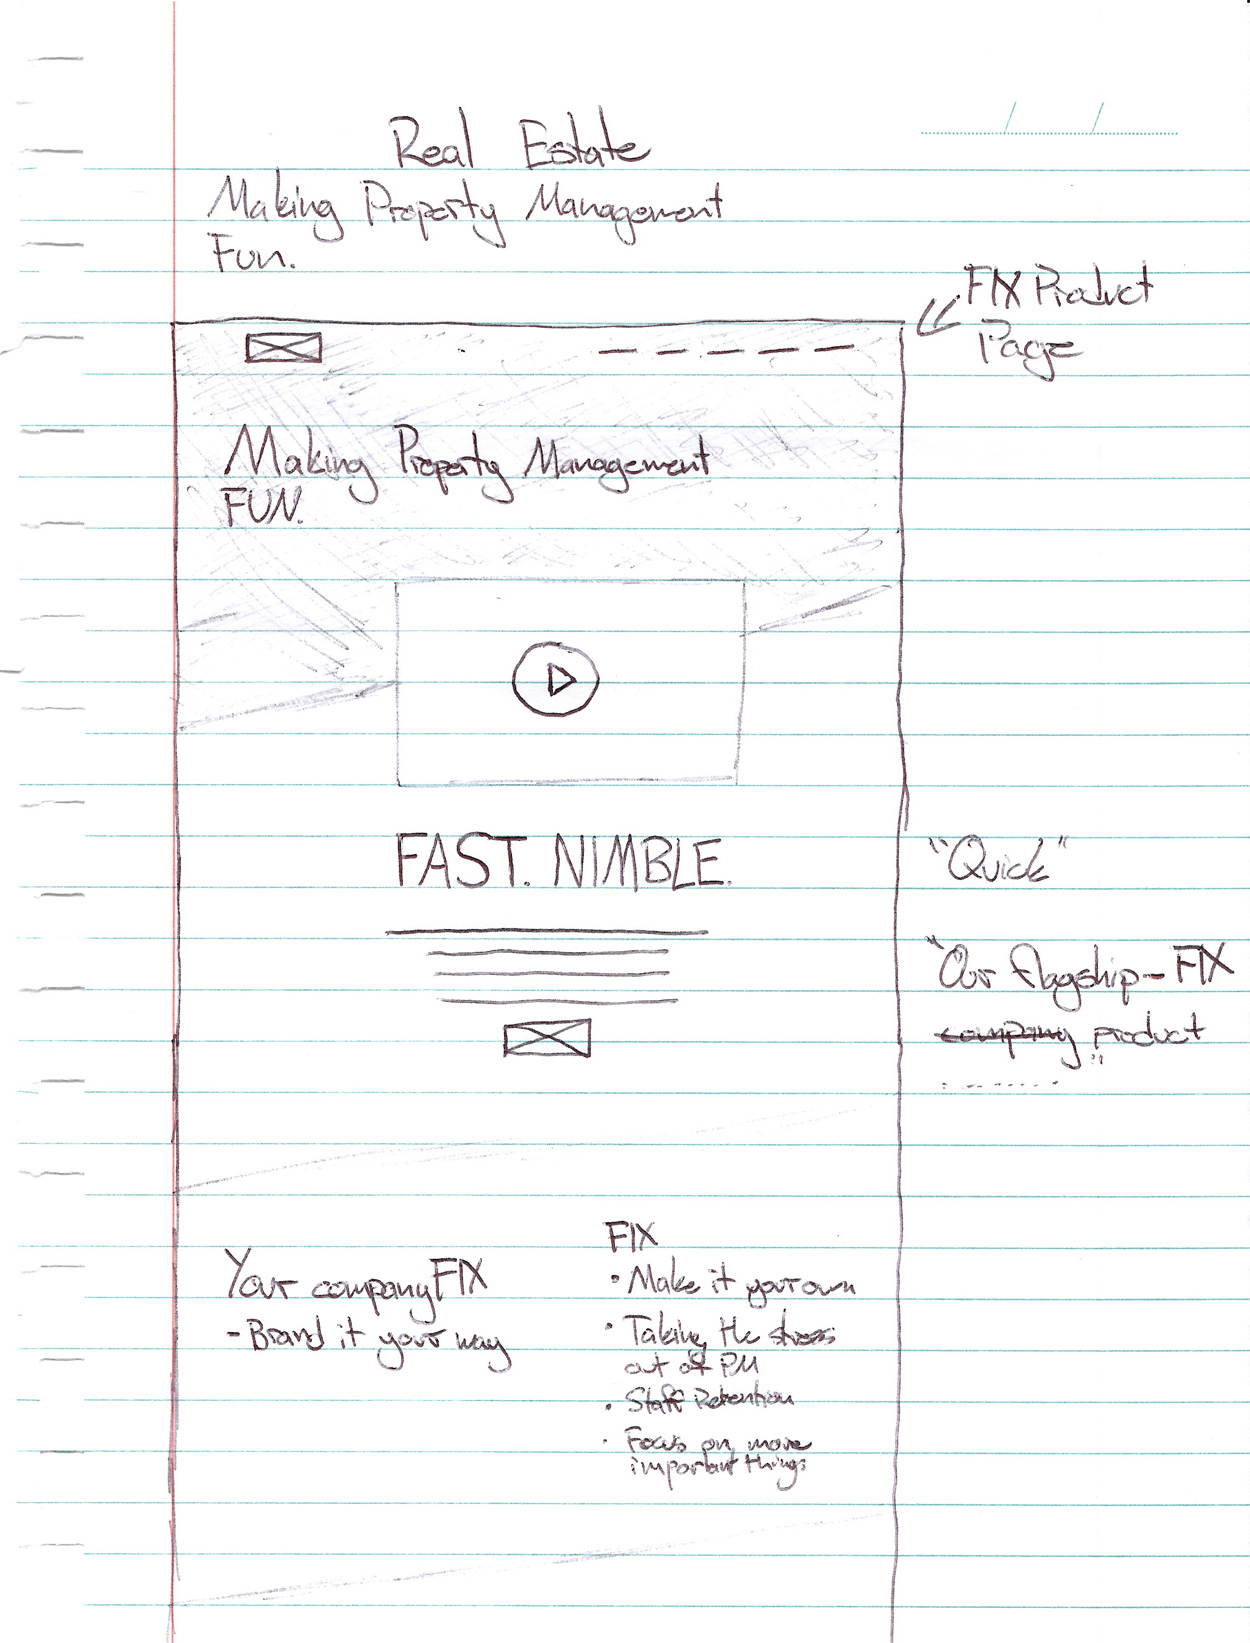 Real Estate
Making Property Management
Fun.
FIX Product
Page
Making Property Management
FUN.
FAST. NIMBLE.
"Quick"
"Our flagship - FIX
company product"
Your company FIX
- Brand it your way
FIX
• Make it your own
• Taking the stress
out of PM
• Staff Retention
• Focus on more
important things